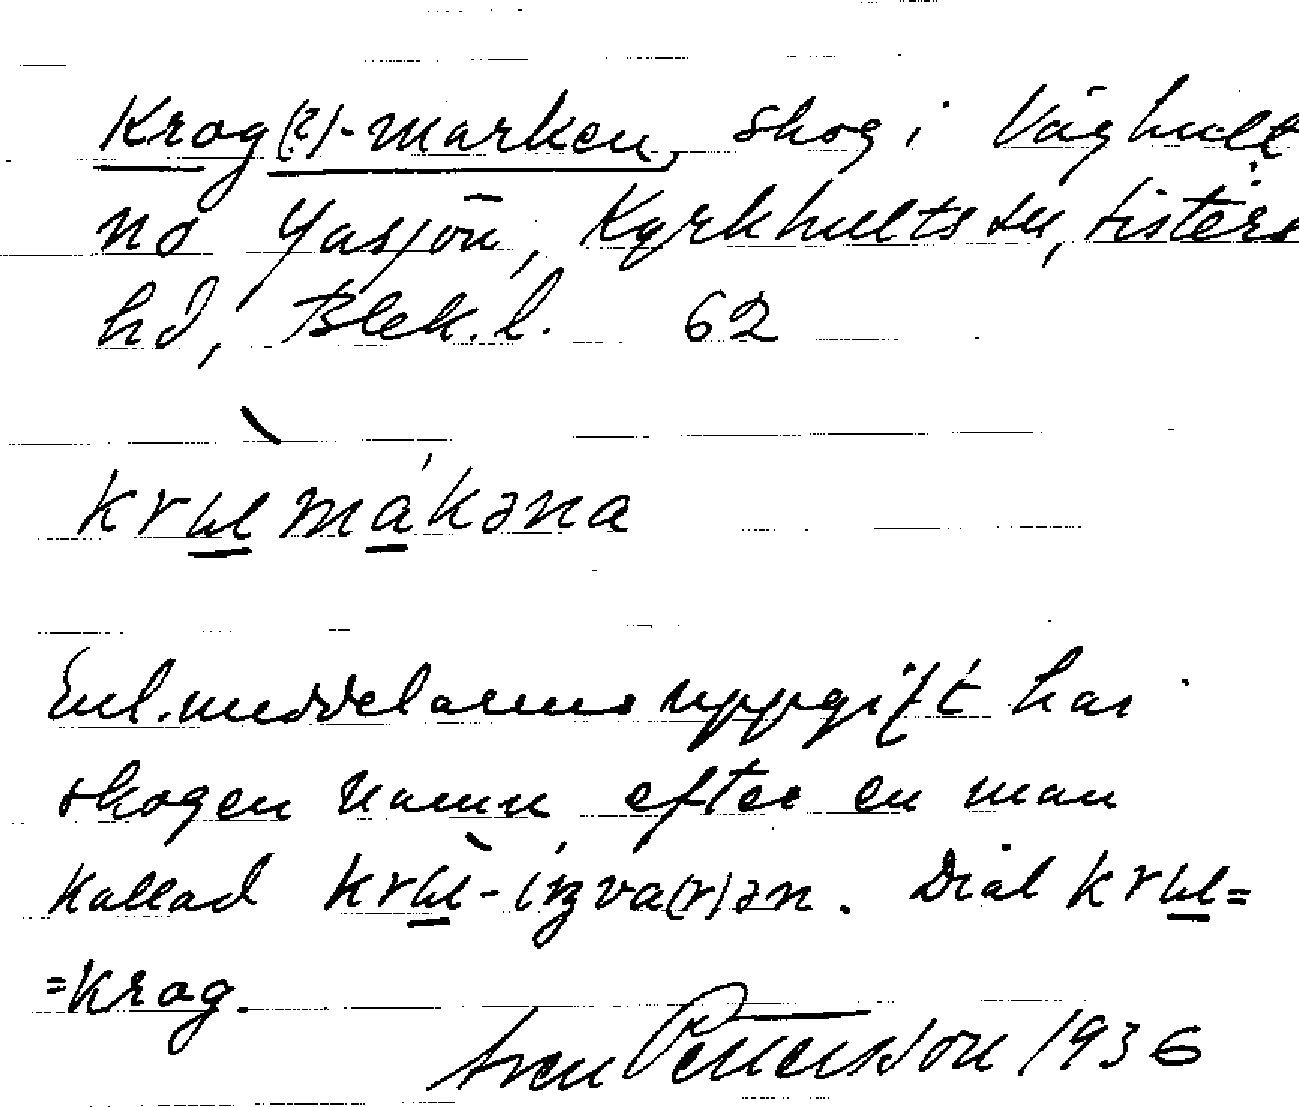 Krog(?)-marken, skog i Våghult
no Yasjön, Kyrkhults sn, Listers
hd, Blek. l. 62
krɯlmákəna
Enl. meddelarens uppgift har
skogen namn efter en man
kallad krɯl-iŋva(r)ən. Dial krɯl=
=krog.
Sven Pettersson 1936